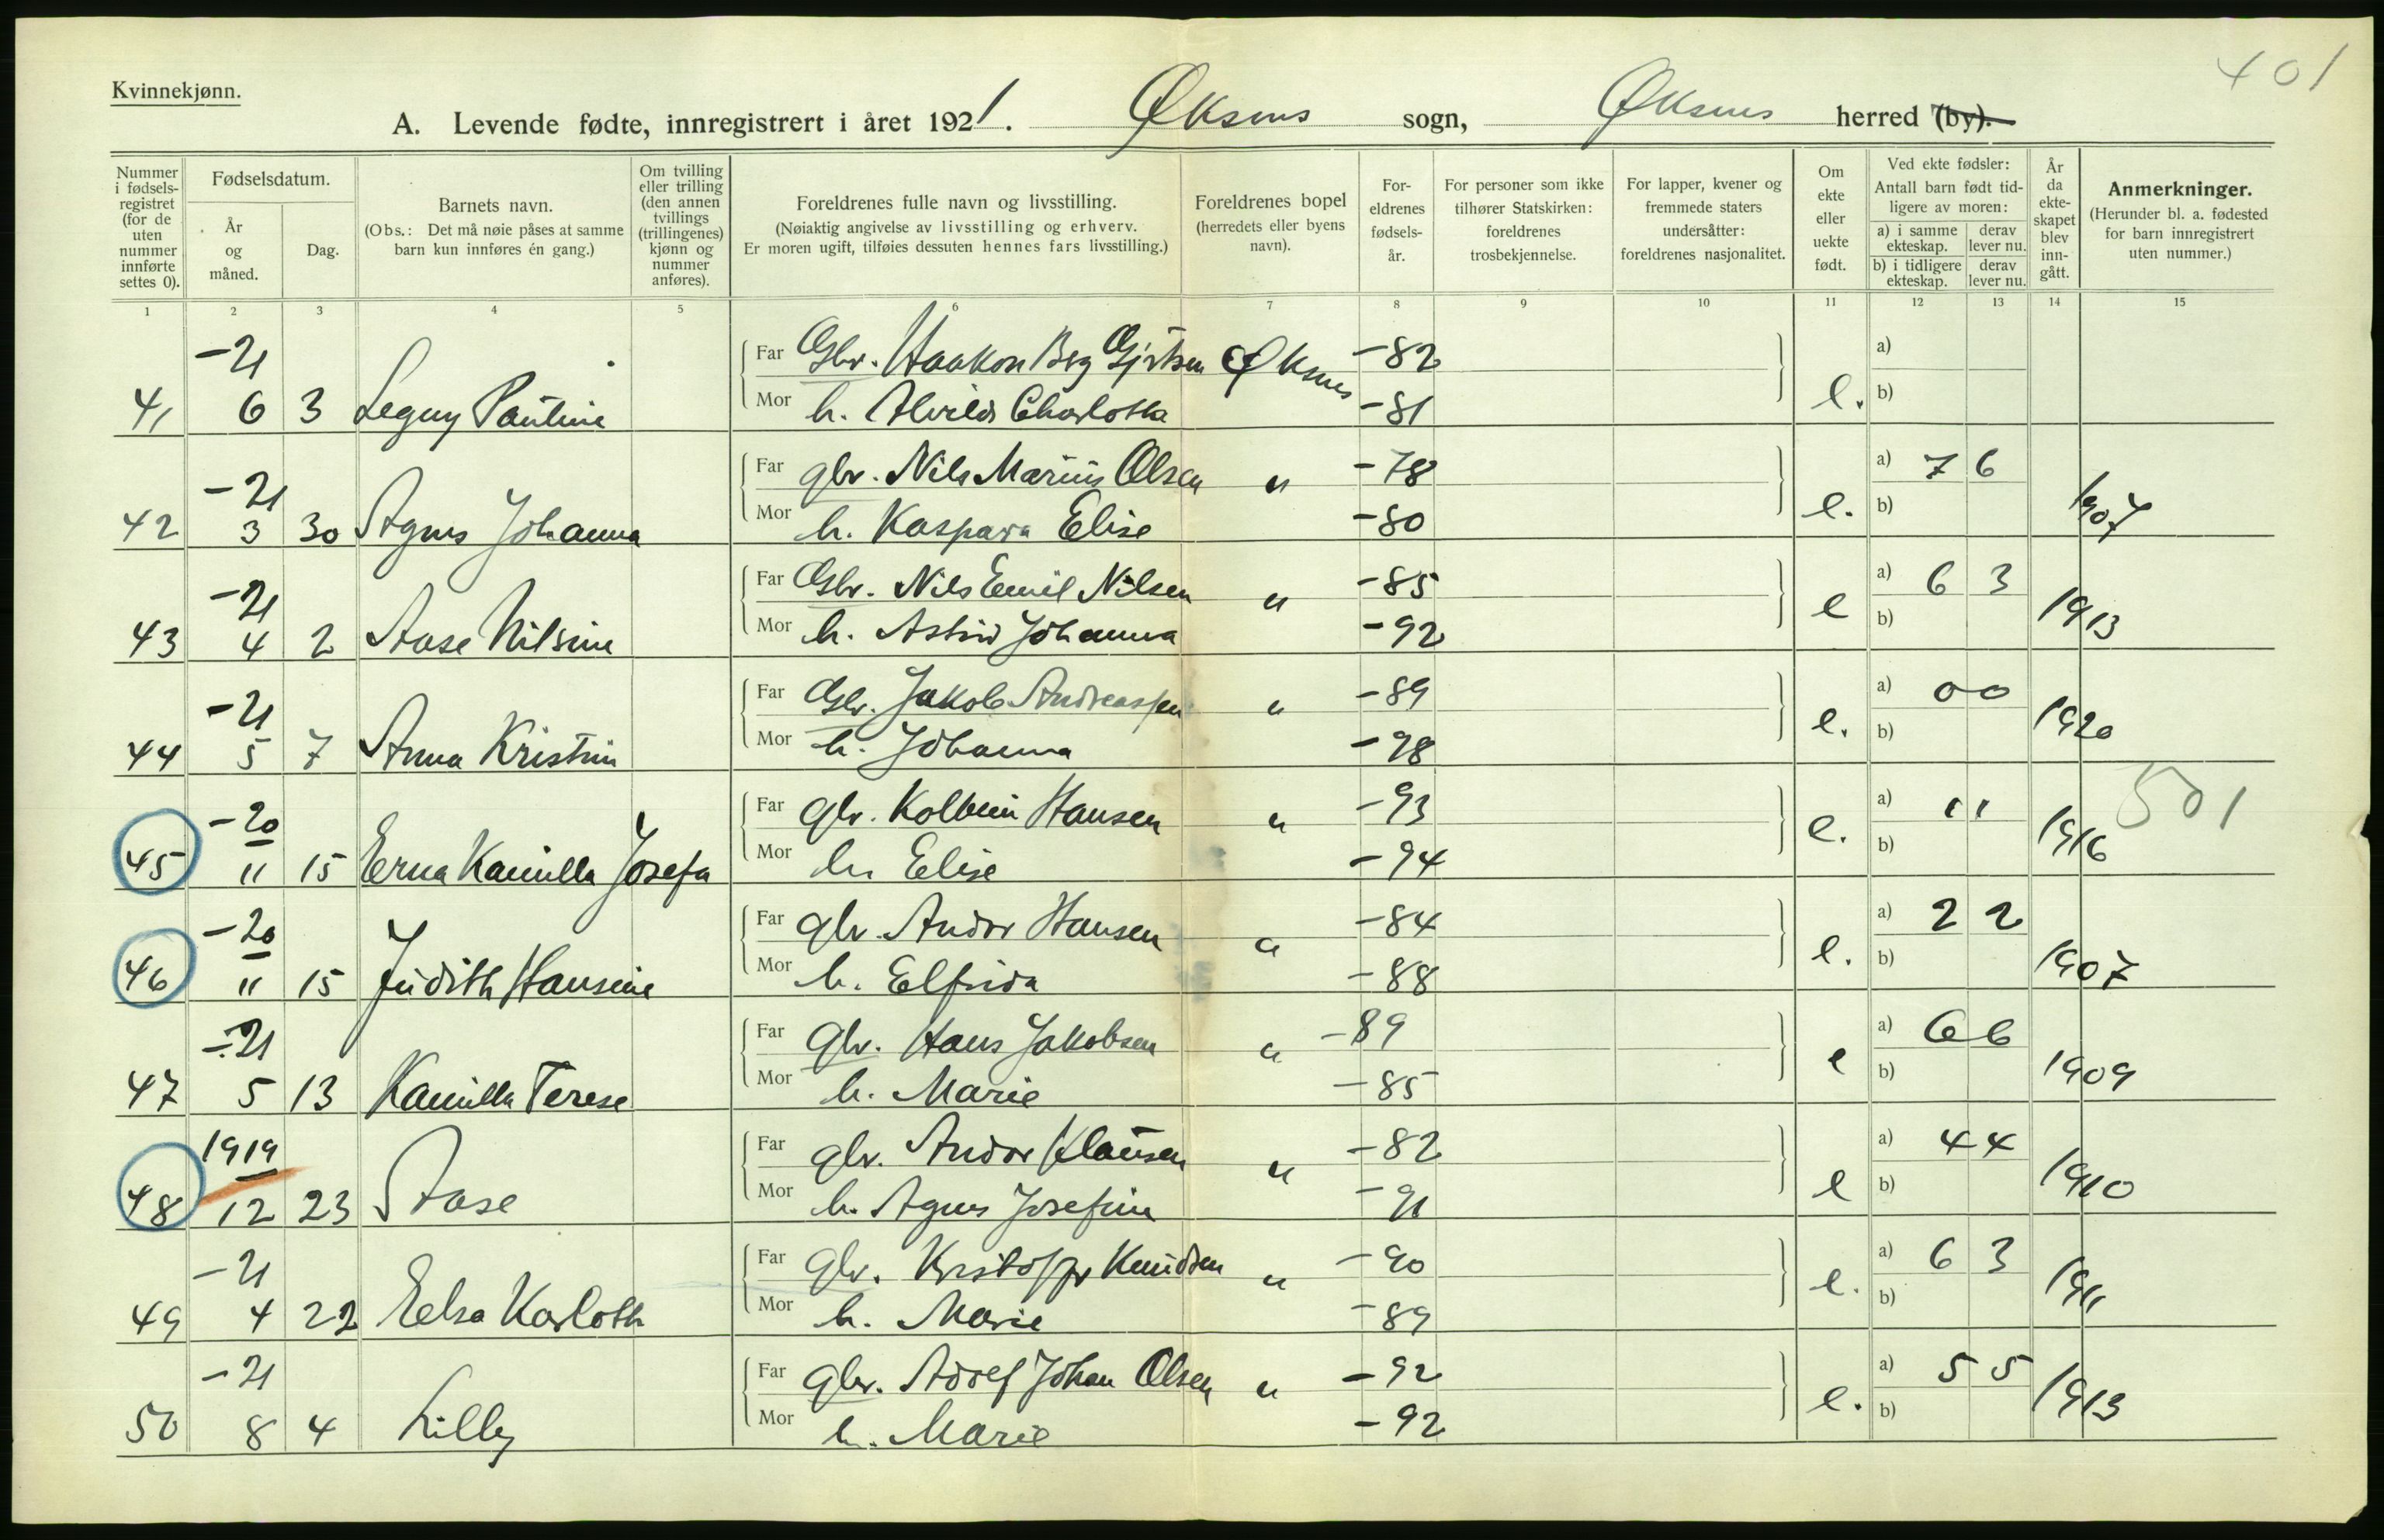 401
Kvinnekjønn.
A. Levende fødte, innregistrert i året 1921. Øksnes sogn, Øksnes herred (by).
Nummer i fødsels- registret (for de uten nummer innførte settes 0).
Fødselsdatum.
År og måned.
Dag.
Barnets navn.
(Obs.: Det må nøie påses at samme barn kun innføres én gang.)
Om tvilling eller trilling (den annen tvillings (trillingenes) kjønn og nummer anføres).
Foreldrenes fulle navn og livsstilling.
(Nøiaktig angivelse av livsstilling og erhverv.
Er moren ugift, tilføies dessuten hennes fars livsstilling.)
Foreldrenes bopel
(herredets eller byens navn).
For- eldrenes fødsels- år.
For personer som ikke tilhører Statskirken: foreldrenes trosbekjennelse.
For lapper, kvener og fremmede staters undersåtter: foreldrenes nasjonalitet.
Om ekte eller uekte født.
Ved ekte fødsler:
Antall barn født tid- ligere av moren:
a) i samme ekteskap.
derav lever nu.
b) i tidligere ekteskap.
derav lever nu.
År da ekte- skapet blev inn- gått.
Anmerkninger.
(Herunder bl. a. fødested for barn innregistrert uten nummer.)
1 2 3 4 5 6 7 8 9 10 11 12 13 14 15
-21 Far Gbr. Haakon Berg Gjertsen Øksnes -82 a)
41 6 3 Legny Pauline Mor h. Alvilde Charlotta -81 e. b)
-21 Far gbr. Nils Marius Olsen " -78 a) 7 6
42 3 30 Agnes Johanna Mor h. Kaspara Elise -80 e. b) 1907
-21 Far Gbr. Nils Emil Nilsen " -85 a) 6 3
43 4 2 Aase Nilsine Mor h. Astrid Johanna -92 e b) 1913
-21 Far Gbr. Jakob Andreassen " -89 a) 0 0
44 5 7 Anna Kristin Mor h. Johanna -98 e. b) 1920
-20 Far gbr. Kolbein Hansen " -93 a) 1 1 501
45 11 15 Erna Kamilla Josefa Mor h. Elise -94 e. b) 1916
-20 Far gbr. Andor Hansen " -84 a) 2 2
46 11 15 Judith Hansine Mor h. Elfrida -88 e. b) 1907
-21 Far Gbr. Hans Jakobsen " -89 a) 6 6
47 5 13 Kamilla Terese Mor h. Marie -85 e b) 1909
1919 Far gbr. Andor Klausen " -82 a) 4 4
48 12 23 Aase Mor h. Agnes Josefine -91 e b) 1910
-21 Far Gbr. Kristoffer Knudsen " -90 a) 6 3
49 4 22 Eelsa Karloth Mor h. Marie -89 e. b) 1911
-21 Far gbr. Adolf Johan Olsen " -92 a) 5 5
50 8 4 Lilly Mor h. Marie -92 e. b) 1913